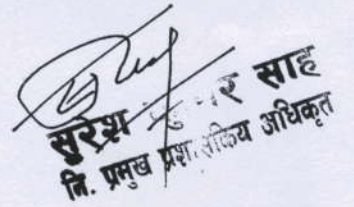 सुरेश कुमार साह
नि. प्रमुख प्रशासकिय अधिकृत